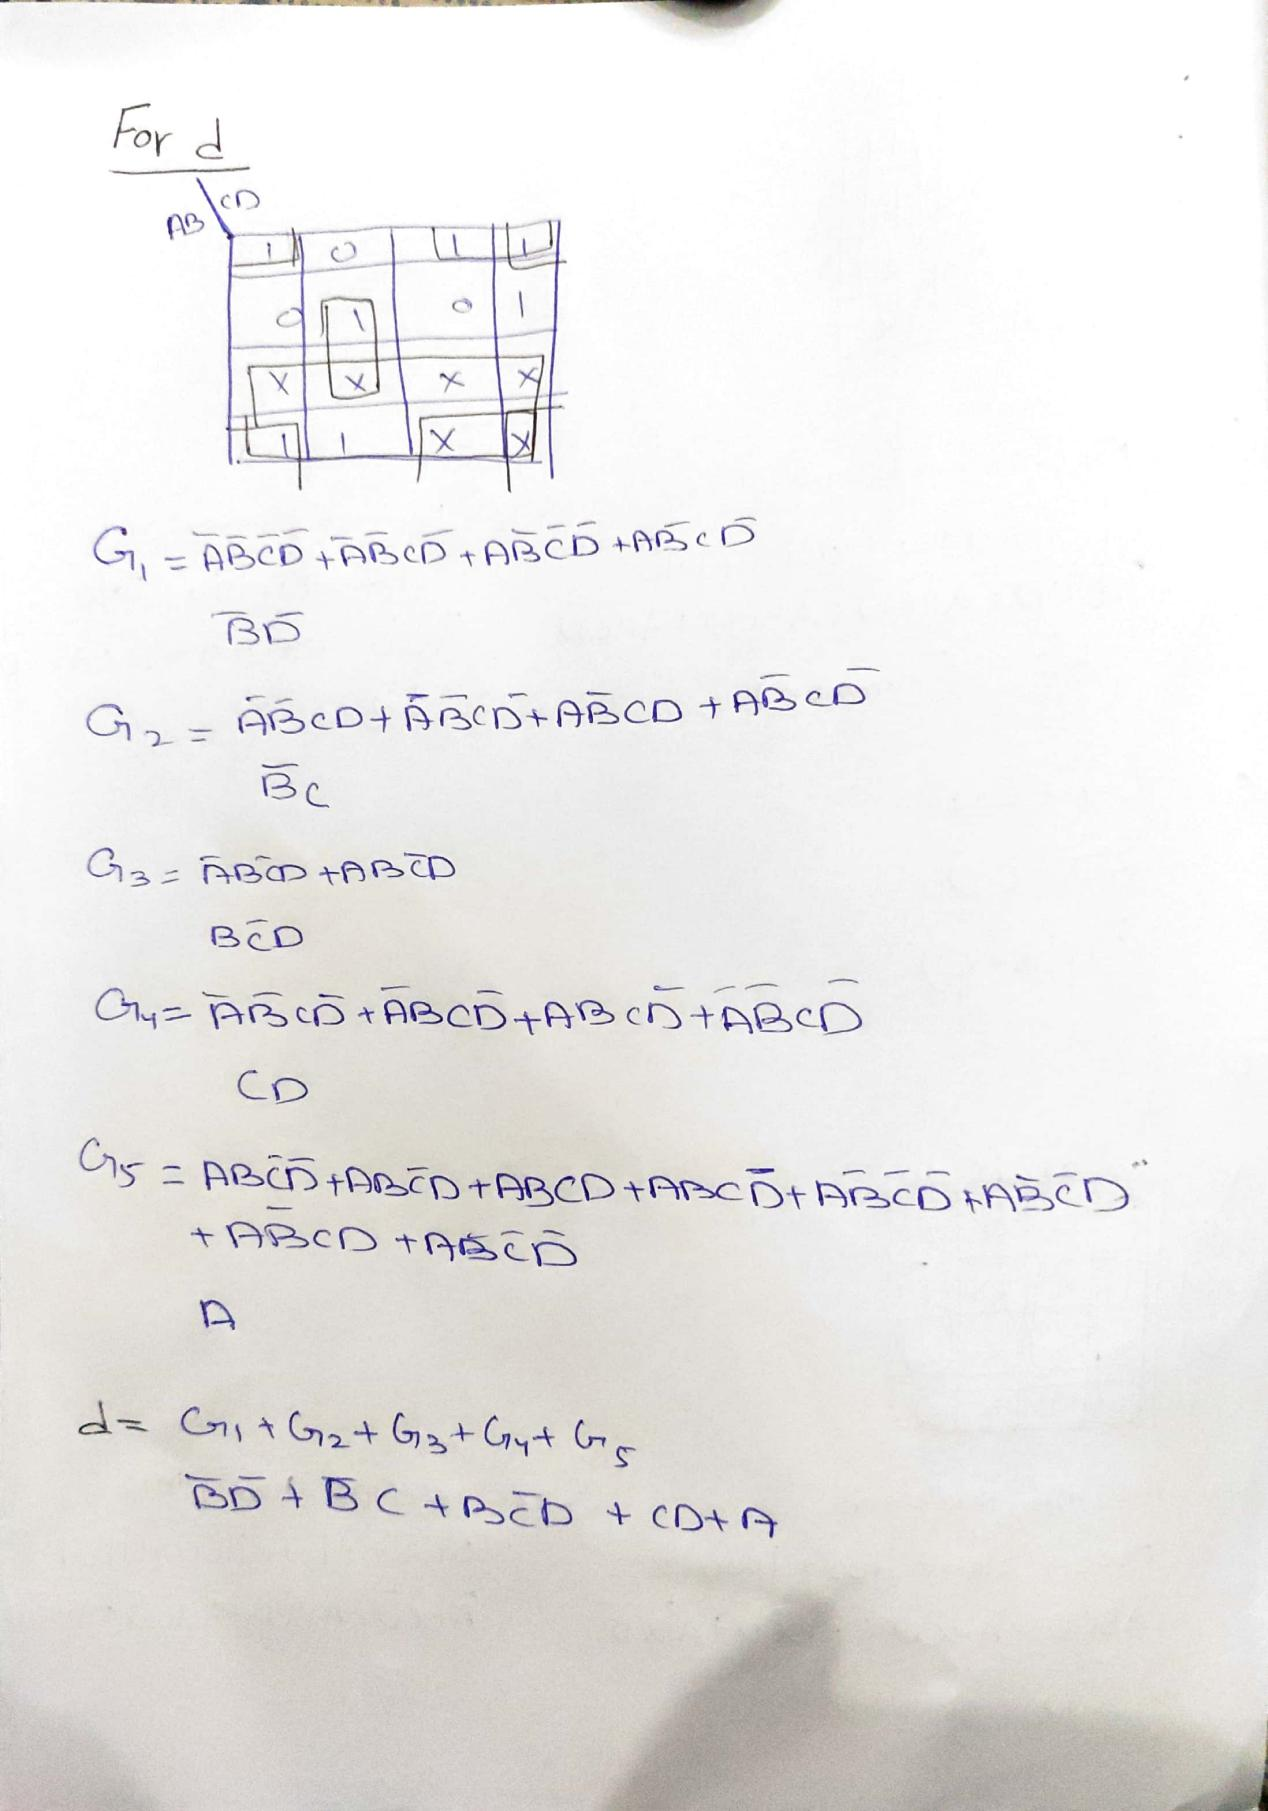 For d
AB \ CD
1 0 1 1
0 1 0 1
X X X X
1 1 X X
G₁ = A̅B̅C̅D̅ + A̅B̅CD̅ + AB̅C̅D̅ + AB̅CD̅
B̅D̅
G₂ = A̅B̅CD + A̅B̅CD̅ + AB̅CD + AB̅CD̅
B̅C
G₃ = A̅BC̅D + ABC̅D
BC̅D
G₄ = A̅B̅CD̅ + A̅BCD̅ + ABCD̅ + A̅B̅CD̅
CD
G₅ = ABC̅D̅ + ABC̅D + ABCD + ABCD̅ + AB̅C̅D̅ + AB̅C̅D
+ AB̅CD + AB̅C̅D̅
A
d = G₁ + G₂ + G₃ + G₄ + G₅
B̅D̅ + B̅C + BC̅D + CD + A